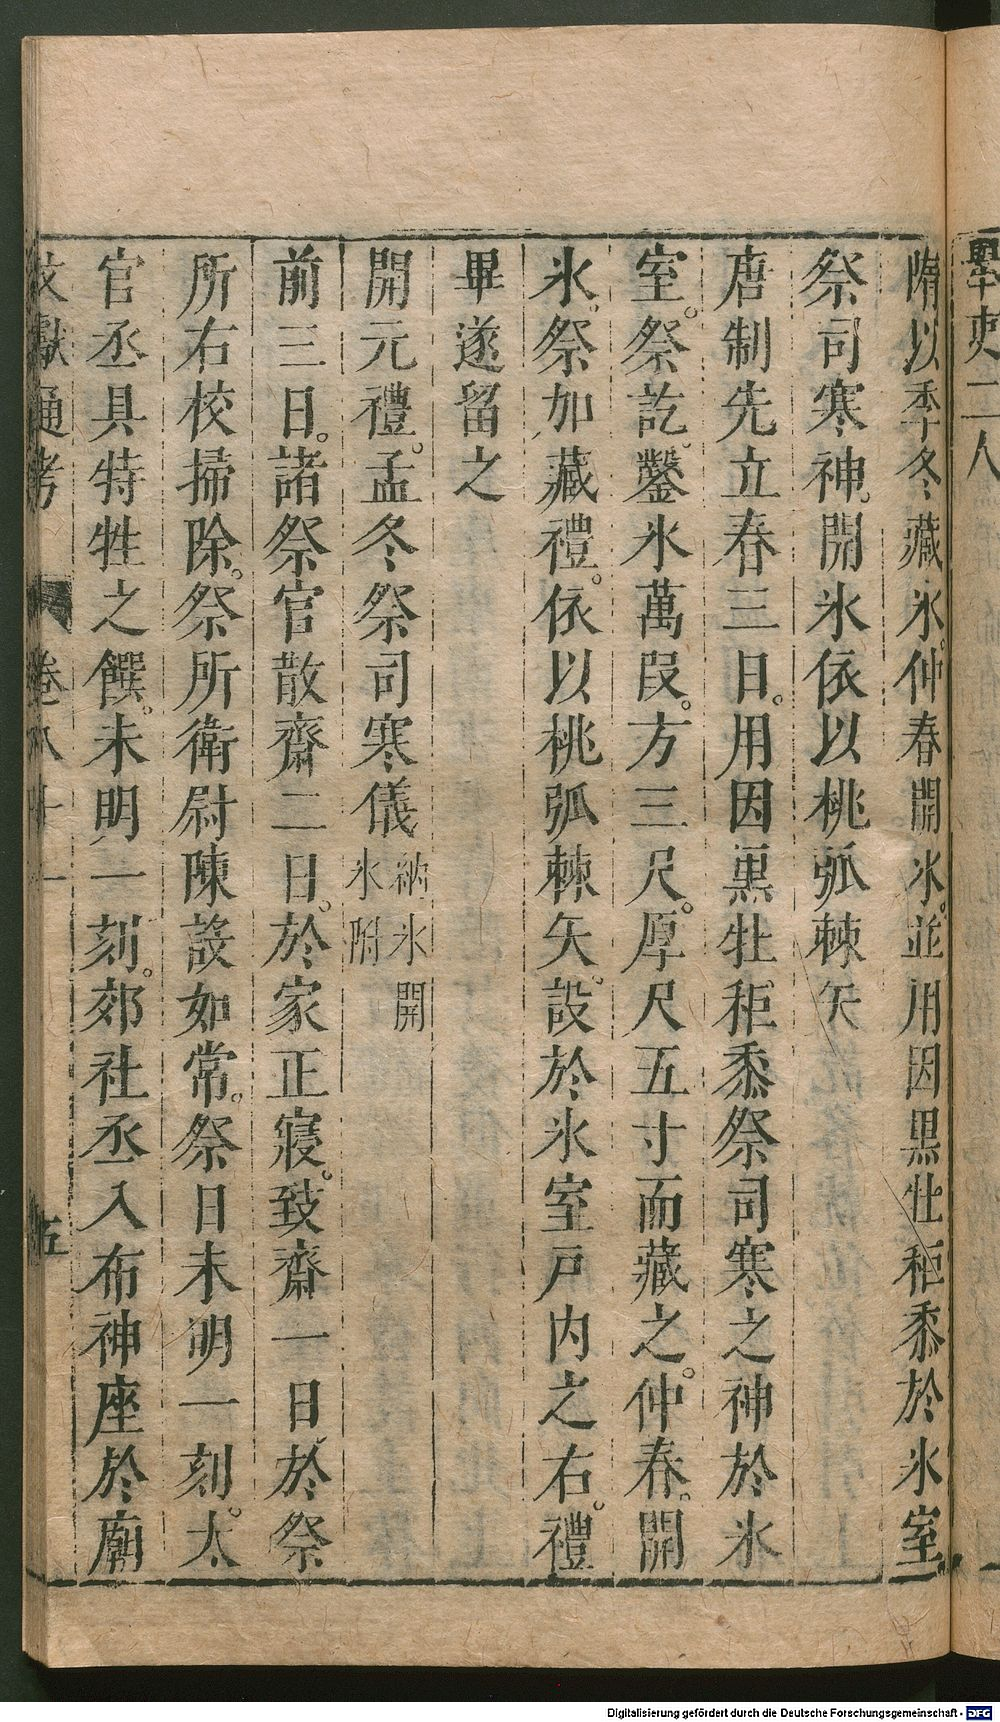 舉吏二人
隋以季冬藏氷。仲春開氷。並用因黒牡秬黍於氷室
祭司寒神。開氷依以桃弧棘矢
唐制先立春三日。用因黒牡秬黍祭司寒之神於氷
室。祭訖。鑿氷萬段。方三尺。厚尺五寸而藏之。仲春。開
氷。祭如藏禮。依以桃弧棘矢。設於氷室戸内之右。禮
畢遂留之
開元禮。孟冬祭司寒儀納氷開氷附
前三日。諸祭官散齋二日。於家正寝。致齋一日。於祭
所右校掃除。祭所衛尉陳設如常。祭日未明一刻。太
官丞具特牲之饌。未明一刻。郊社丞入布神座於廟
文獻通考 卷八十一 五
Digitalisierung gefördert durch die Deutsche Forschungsgemeinschaft - DFG